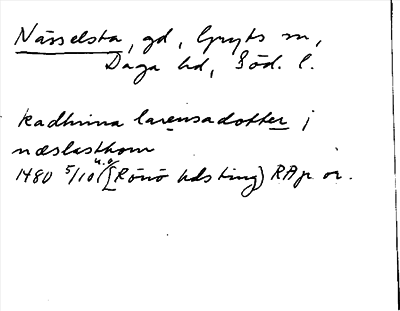 Nässelsta, gd, Gryts sn,
Daga hd, Söd. l.
kadhrina larensadotter i
næslasthom
1480 5/10 u.o. ([Rönö hds ting) RAp or.